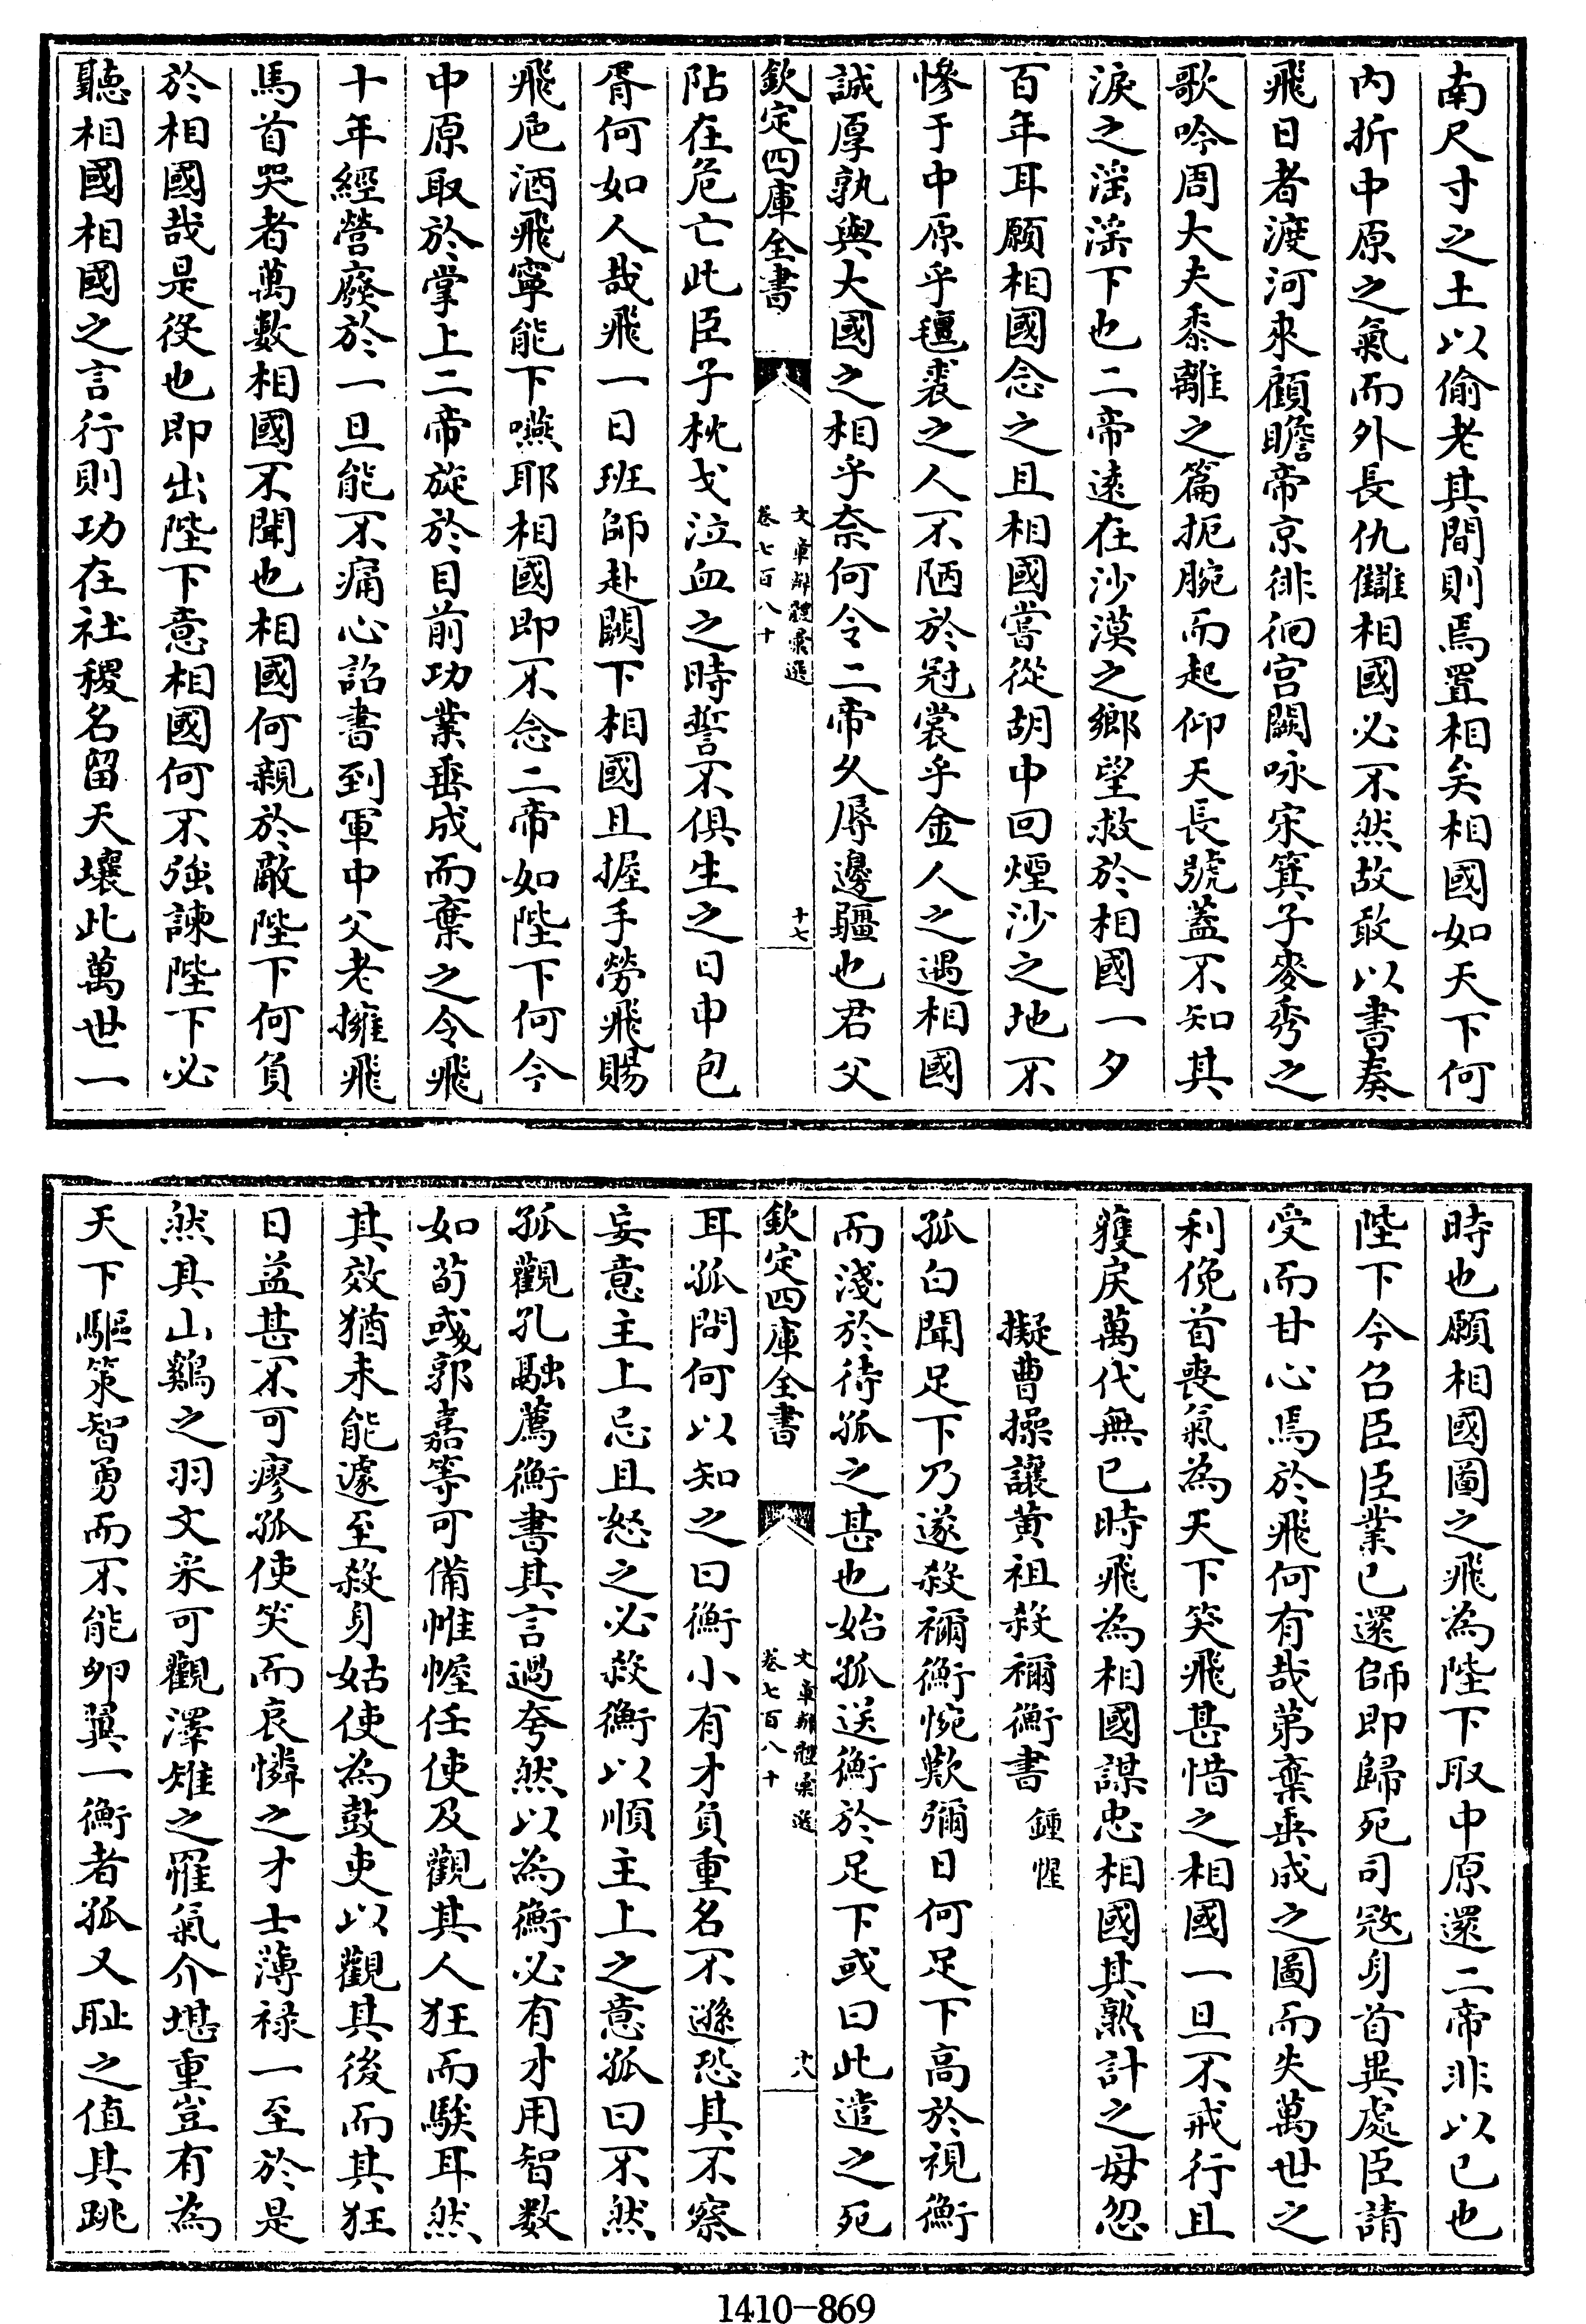 南尺寸之土以偷老其間則焉置相矣相國如天下何
内折中原之氣而外長仇讎相國必不然故敢以書奏
飛日者渡河來顧瞻帝京徘徊宫闕咏宋箕子麥秀之
歌吟周大夫黍離之篇扼腕而起仰天長號蓋不知其
淚之滛滛下也二帝逺在沙漠之鄉望救於相國一夕
百年耳願相國念之且相國嘗從胡中回煙沙之地不
慘于中原乎氊裘之人不陋於冠裳乎金人之遇相國
誠厚孰與大國之相乎奈何令二帝久辱邊疆也君父
欽定四庫全書
文章辨體彚選
卷七百八十
十七
阽在危亡此臣子枕戈泣血之時誓不俱生之日申包
胥何如人哉飛一日班師赴闕下相國且握手勞飛賜
飛巵酒飛寧能下嚥耶相國即不念二帝如陛下何今
中原取於掌上二帝旋於目前功業垂成而棄之令飛
十年經營廢於一旦能不痛心詔書到軍中父老擁飛
馬首哭者萬數相國不聞也相國何親於敵陛下何負
於相國哉是役也即出陛下意相國何不強諫陛下必
聽相國相國之言行則功在社稷名留天壤此萬世一
時也願相國圖之飛為陛下取中原還二帝非以已也
陛下今召臣臣業已還師即歸死司冦身首異處臣請
受而甘心焉於飛何有哉第棄垂成之圖而失萬世之
利俛首喪氣為天下笑飛甚惜之相國一旦不戒行且
獲戾萬代無已時飛為相國謀忠相國其熟計之毋忽
擬曹操讓黄祖殺禰衡書 鍾惺
孤白聞足下乃遂殺禰衡惋歎彌日何足下高於視衡
而淺於待孤之甚也始孤送衡於足下或曰此遣之死
欽定四庫全書
文章辨體彚選
卷七百八十
十八
耳孤問何以知之曰衡小有才負重名不遜恐其不察
妄意主上忌且怒之必殺衡以順主上之意孤曰不然
孤觀孔融薦衡書其言過夸然以為衡必有才用智数
如荀彧郭嘉等可備帷幄任使及觀其人狂而騃耳然
其效猶未能遽至殺身姑使為鼓吏以觀其後而其狂
日益甚不可瘳孤使笑而哀憐之才士薄禄一至於是
然其山鷄之羽文采可觀澤雉之罹氣介堪重豈有為
天下驅策智勇而不能卵翼一衡者孤又耻之值其跳
1410—869